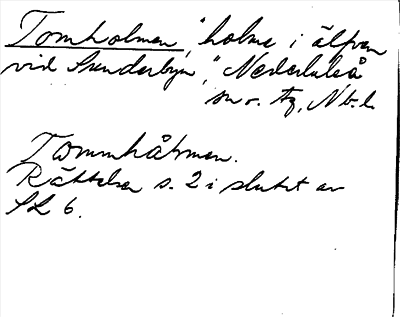 Tomholmen, "holme i älfven
vid Sunderbyn", Nederluleå
sn o. tg, N.b.l.
Tommhåtmen.
Rättelser s. 2 i slutet av
SL 6.